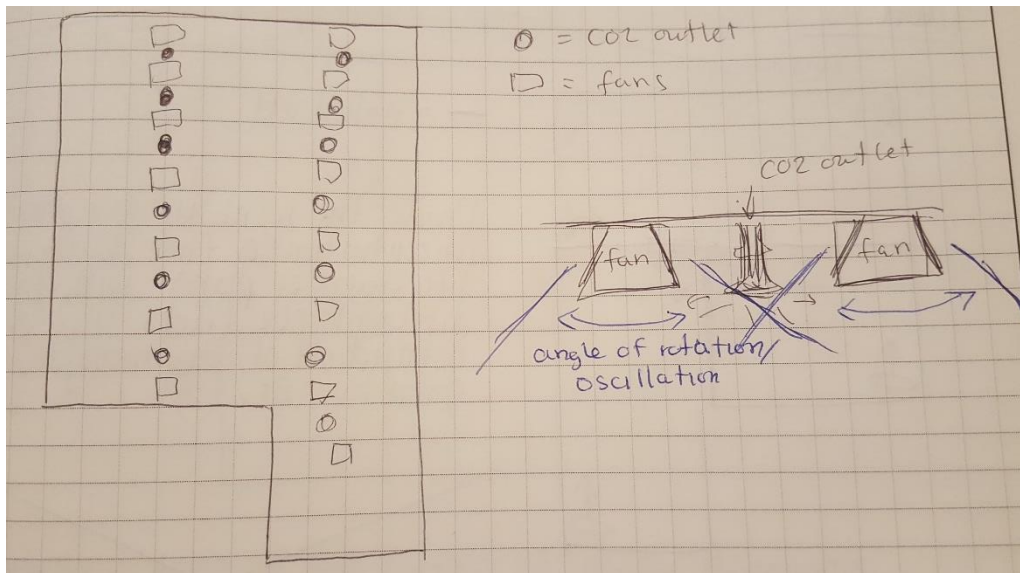 O = CO2 outlet
D = fans
CO2 outlet
fan
fan
angle of rotation/
oscillation